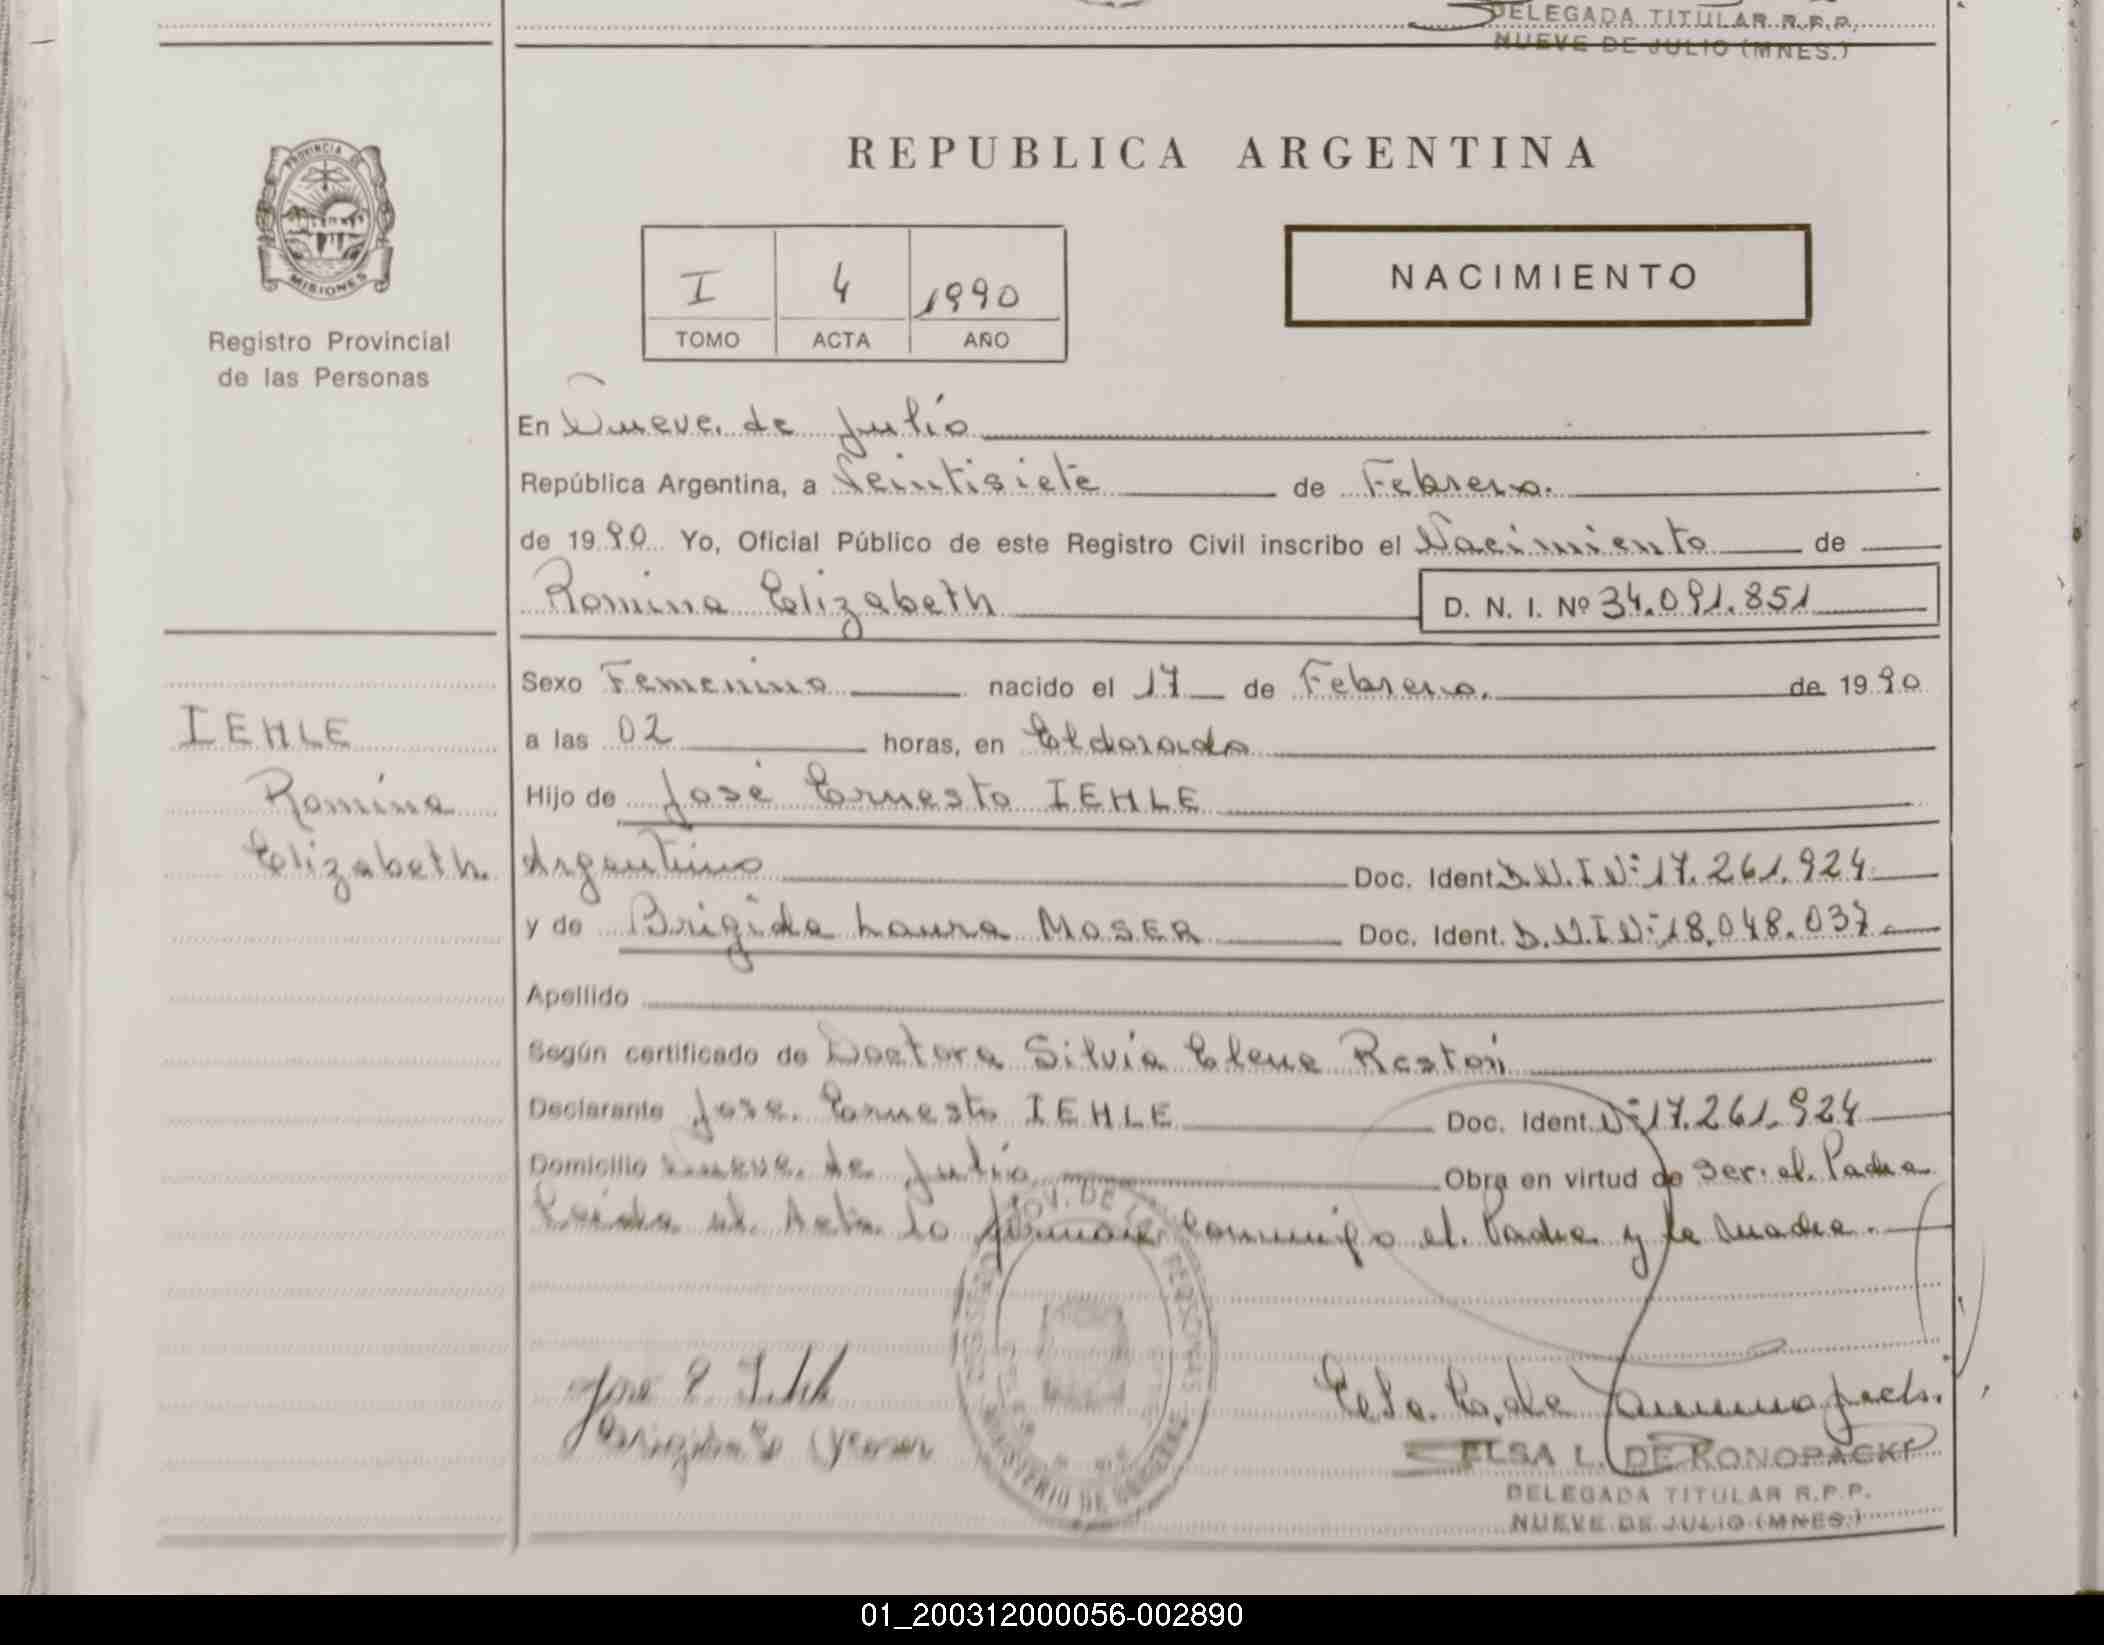 DELEGADA TITULAR R.P.P.
NUEVE DE JULIO (MNES.)
PROVINCIA DE
MISIONES
Registro Provincial
de las Personas
REPUBLICA ARGENTINA
I 4 1990
TOMO ACTA AÑO
NACIMIENTO
En Nueve de Julio
República Argentina, a Veintisiete de Febrero.
de 1990 Yo, Oficial Público de este Registro Civil inscribo el Nacimiento de
Romina Elizabeth D. N. I. Nº 34.091.851
Sexo Femenino nacido el 17 de Febrero. de 1990
IEHLE
Romina
Elizabeth.
a las 02 horas, en Eldorado
Hijo de José Ernesto IEHLE
Argentino Doc. Ident. D.N.I Nº 17.261.924
y de Brigida Laura MOSER Doc. Ident. D.N.I Nº 18.048.037
Apellido
Según certificado de Doctora Silvia Elena
Declarante Jose Ernesto IEHLE Doc. Ident. Nº 17.261.924
Domicilio Nueve de Julio Obra en virtud de ser el Padre
Leida el Acta la firman conmigo el Padre y la Madre.
ELSA L. DE KONOPACKI
DELEGADA TITULAR R.P.P.
NUEVE DE JULIO (MNES.)
01_200312000056-002890